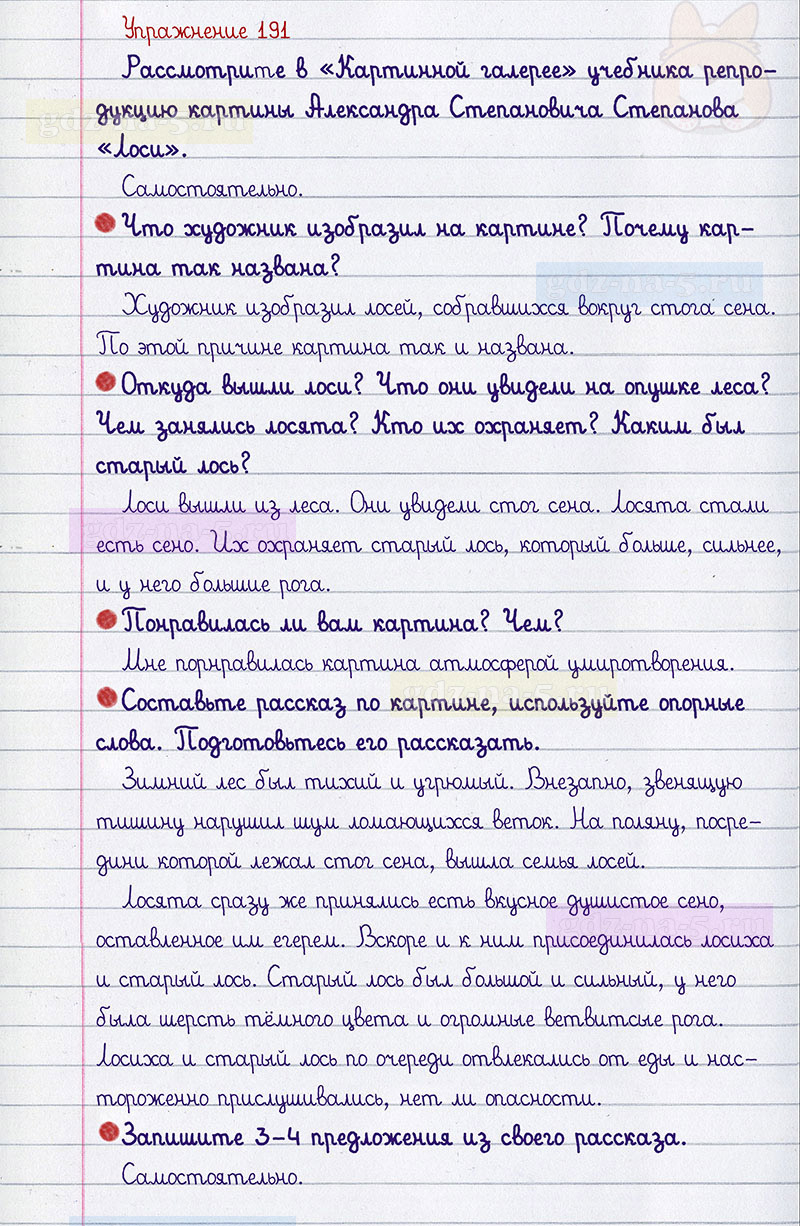 Упражнение 191
Рассмотрите в «Картинной галерее» учебника репро-
дукцию картины Александра Степановича Степанова
«Лоси».
Самостоятельно.
Что художник изобразил на картине? Почему кар-
тина так названа?
Художник изобразил лосей, собравшихся вокруг стога сена.
По этой причине картина так и названа.
Откуда вышли лоси? Что они увидели на опушке леса?
Чем занялись лосята? Кто их охраняет? Каким был
старый лось?
Лоси вышли из леса. Они увидели стог сена. Лосята стали
есть сено. Их охраняет старый лось, который больше, сильнее,
и у него большие рога.
Понравилась ли вам картина? Чем?
Мне порнравилась картина атмосферой умиротворения.
Составьте рассказ по картине, используйте опорные
слова. Подготовьтесь его рассказать.
Зимний лес был тихий и угрюмый. Внезапно, звенящую
тишину нарушил шум ломающихся веток. На поляну, посре-
дини которой лежал стог сена, вышла семья лосей.
Лосята сразу же принялись есть вкусное душистое сено,
оставленное им егерем. Вскоре и к ним присоединилась лосиха
и старый лось. Старый лось был большой и сильный, у него
была шерсть тёмного цвета и огромные ветвитсые рога.
Лосиха и старый лось по очереди отвлекались от еды и нас-
тороженно прислушивались, нет ли опасности.
Запишите 3-4 предложения из своего рассказа.
Самостоятельно.
gdz-na-5.ru
gdz-na-5.ru
gdz-na-5.ru
gdz-na-5.ru
gdz-na-5.ru